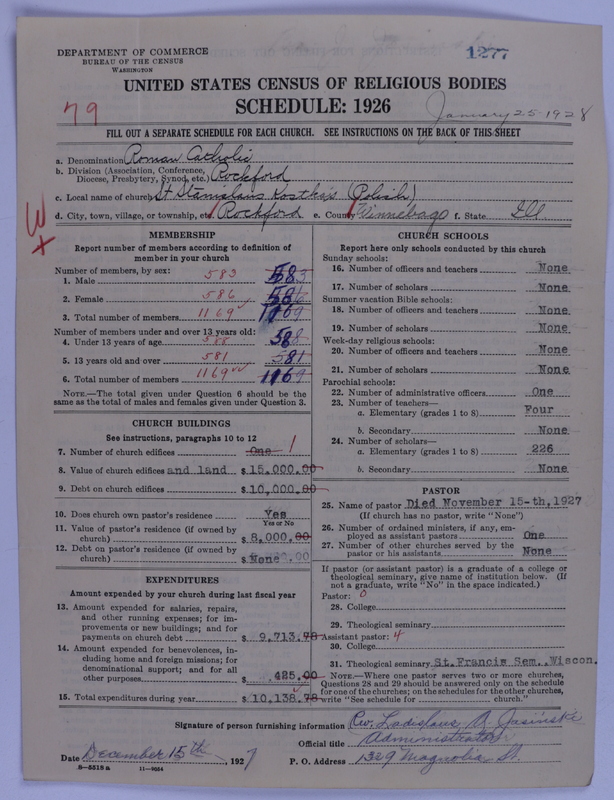 DEPARTMENT OF COMMERCE
BUREAU OF THE CENSUS
WASHINGTON
1277
UNITED STATES CENSUS OF RELIGIOUS BODIES
SCHEDULE: 1926
79
January 25-1928
FILL OUT A SEPARATE SCHEDULE FOR EACH CHURCH. SEE INSTRUCTIONS ON THE BACK OF THIS SHEET
a. Denomination Roman Catholic
b. Division (Association, Conference, Diocese, Presbytery, Synod, etc.) Rockford
c. Local name of church St. Stanislaus Kostka's (Polish)
d. City, town, village, or township, etc. Rockford e. County Winnebago f. State Ill
MEMBERSHIP
Report number of members according to definition of
member in your church
Number of members, by sex:
1. Male 583 583
2. Female 586 586
3. Total number of members 1169 1169
Number of members under and over 13 years old:
4. Under 13 years of age 588 588
5. 13 years old and over 581 581
6. Total number of members 1169 1169
NOTE.—The total given under Question 6 should be
same as the total of males and females given under Question 3.
CHURCH BUILDINGS
See instructions, paragraphs 10 to 12
7. Number of church edifices One 1
8. Value of church edifices and land $ 15,000.00
9. Debt on church edifices $ 10,000.00
10. Does church own pastor's residence? Yes
Yes or No
11. Value of pastor's residence (if owned by
church) $ 8,000.00
12. Debt on pastor's residence (if owned by
church) $ None .00
EXPENDITURES
Amount expended by your church during last fiscal year
13. Amount expended for salaries, repairs,
and other running expenses; for im-
provements or new buildings; and for
payments on church debt $ 9,713.78
14. Amount expended for benevolences, in-
cluding home and foreign missions; for
denominational support; and for all
other purposes $ 425.00
15. Total expenditures during year $ 10,138.78
CHURCH SCHOOLS
Report here only schools conducted by this church
Sunday schools:
16. Number of officers and teachers None
17. Number of scholars None
Summer vacation Bible schools:
18. Number of officers and teachers None
19. Number of scholars None
Week-day religious schools:
20. Number of officers and teachers None
21. Number of scholars None
Parochial schools:
22. Number of administrative officers One
23. Number of teachers—
a. Elementary (grades 1 to 8) Four
b. Secondary None
24. Number of scholars—
a. Elementary (grades 1 to 8) 226
b. Secondary None
PASTOR
25. Name of pastor Died November 15-th, 1927
(If church has no pastor, write "None")
26. Number of ordained ministers, if any, em-
ployed as assistant pastors One
27. Number of other churches served by the
pastor or his assistants None
If pastor (or assistant pastor) is a graduate of a college or
theological seminary, give name of institution below. (If
not a graduate, write "No" in the space indicated.)
Pastor: 0
28. College
29. Theological seminary
Assistant pastor: 4
30. College
31. Theological seminary St. Francis Sem., Wiscon.
NOTE.—Where one pastor serves two or more churches,
Questions 28 and 29 should be answered only on the schedule
for one of the churches; on the schedules for the other churches,
write "See schedule for church."
Signature of person furnishing information Rev. Ladislaus A. Jasinski
Official title Administrator
Date December 15th, 1927 P. O. Address 1329 Magnolia St.
8—5518a 11—9064